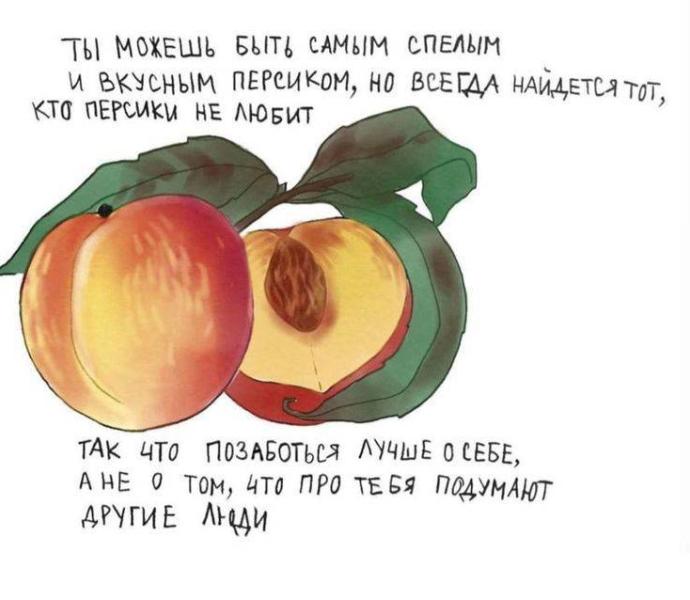 ТЫ МОЖЕШЬ БЫТЬ САМЫМ СПЕЛЫМ
И ВКУСНЫМ ПЕРСИКОМ, НО ВСЕГДА НАЙДЕТСЯ ТОТ,
КТО ПЕРСИКИ НЕ ЛЮБИТ
ТАК ЧТО ПОЗАБОТЬСЯ ЛУЧШЕ О СЕБЕ,
А НЕ О ТОМ, ЧТО ПРО ТЕБЯ ПОДУМАЮТ
ДРУГИЕ ЛЮДИ